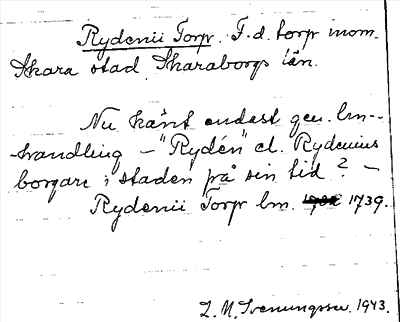 Rydenii Torp. F.d. torp inom
Skara stad, Skaraborgs län.
Nu känt endast gen. lm-
handling - "Rydén" el. Rydenius
borgare i staden på sin tid? -
Rydenii Torp lm. 1739.
Z. M. Svenungsson. 1943.